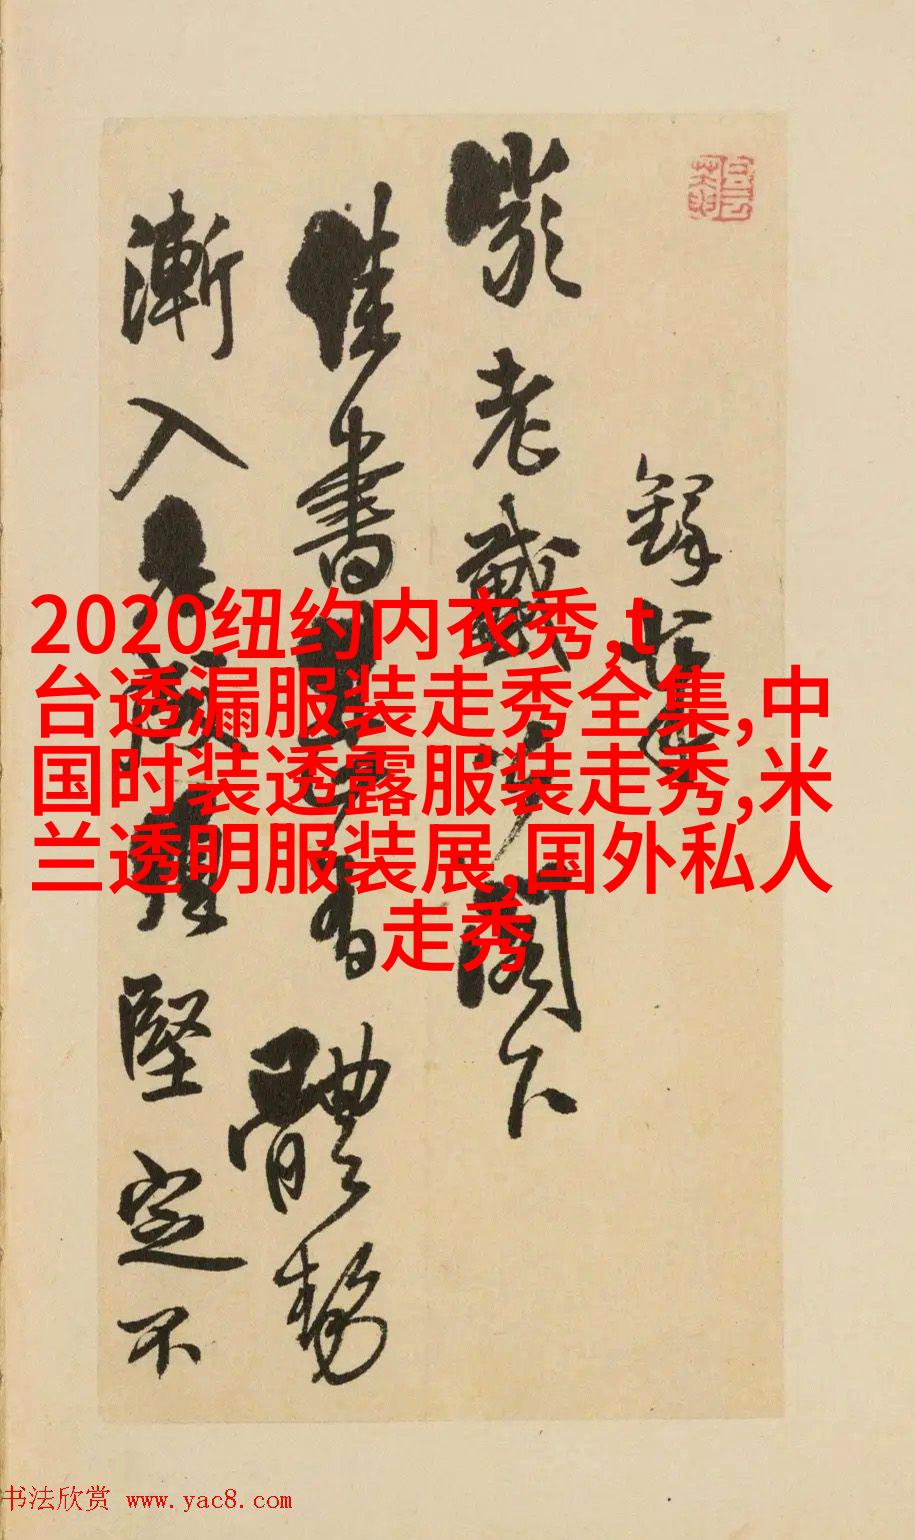 2020纽约内衣秀,t
台透漏服装走秀全集,中
国时装透露服装走秀,米
兰透明服装展,国外私人
走秀
鐸
老戴閣下
佳書有體勢
漸入堅定不
书法欣赏 www.yac8.com